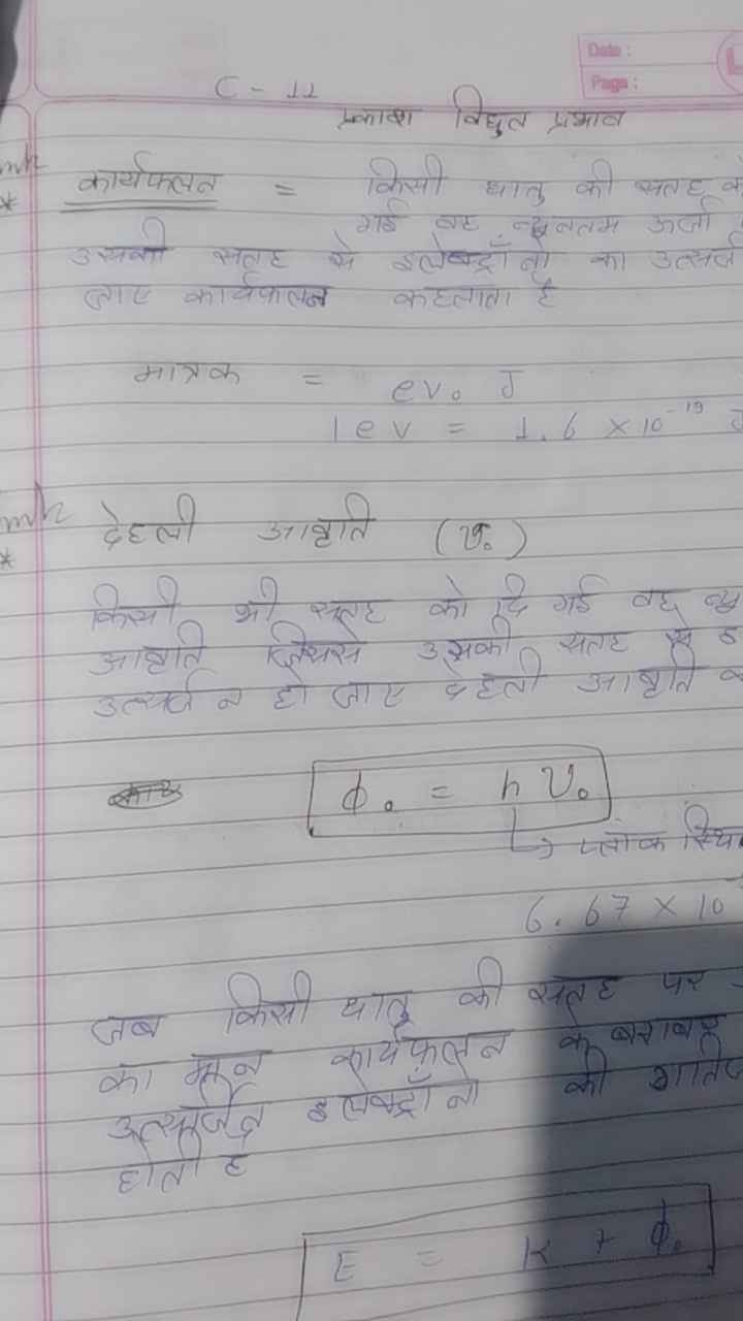 Date :
Page :
C - 11
प्रकाश विद्युत प्रभाव
कार्यफलन = किसी धातु की सतह को
गई वह न्यूनतम ऊर्जा
उसकी सतह से इलेक्ट्रॉनो का उत्सर्ज
जाए कार्यफलन कहलाता है
मात्रक = ev. J
1 e v = 1.6 × 10⁻¹⁹ J
देहली आवृति (υ₀)
किसी भी सतह को दि गई वह न्यु
आवृति जिससे उसकी सतह से इ
उत्सर्जन हो जाए देहली आवृति क
ϕ₀ = h υ₀
↳ प्लांक स्थि
6.67 × 10⁻
जब किसी धातु की सतह पर
का मान कार्यफलन के बराबर
उत्सर्जित इलेक्ट्रॉनो की गतिज
होती है
E = K + ϕ₀